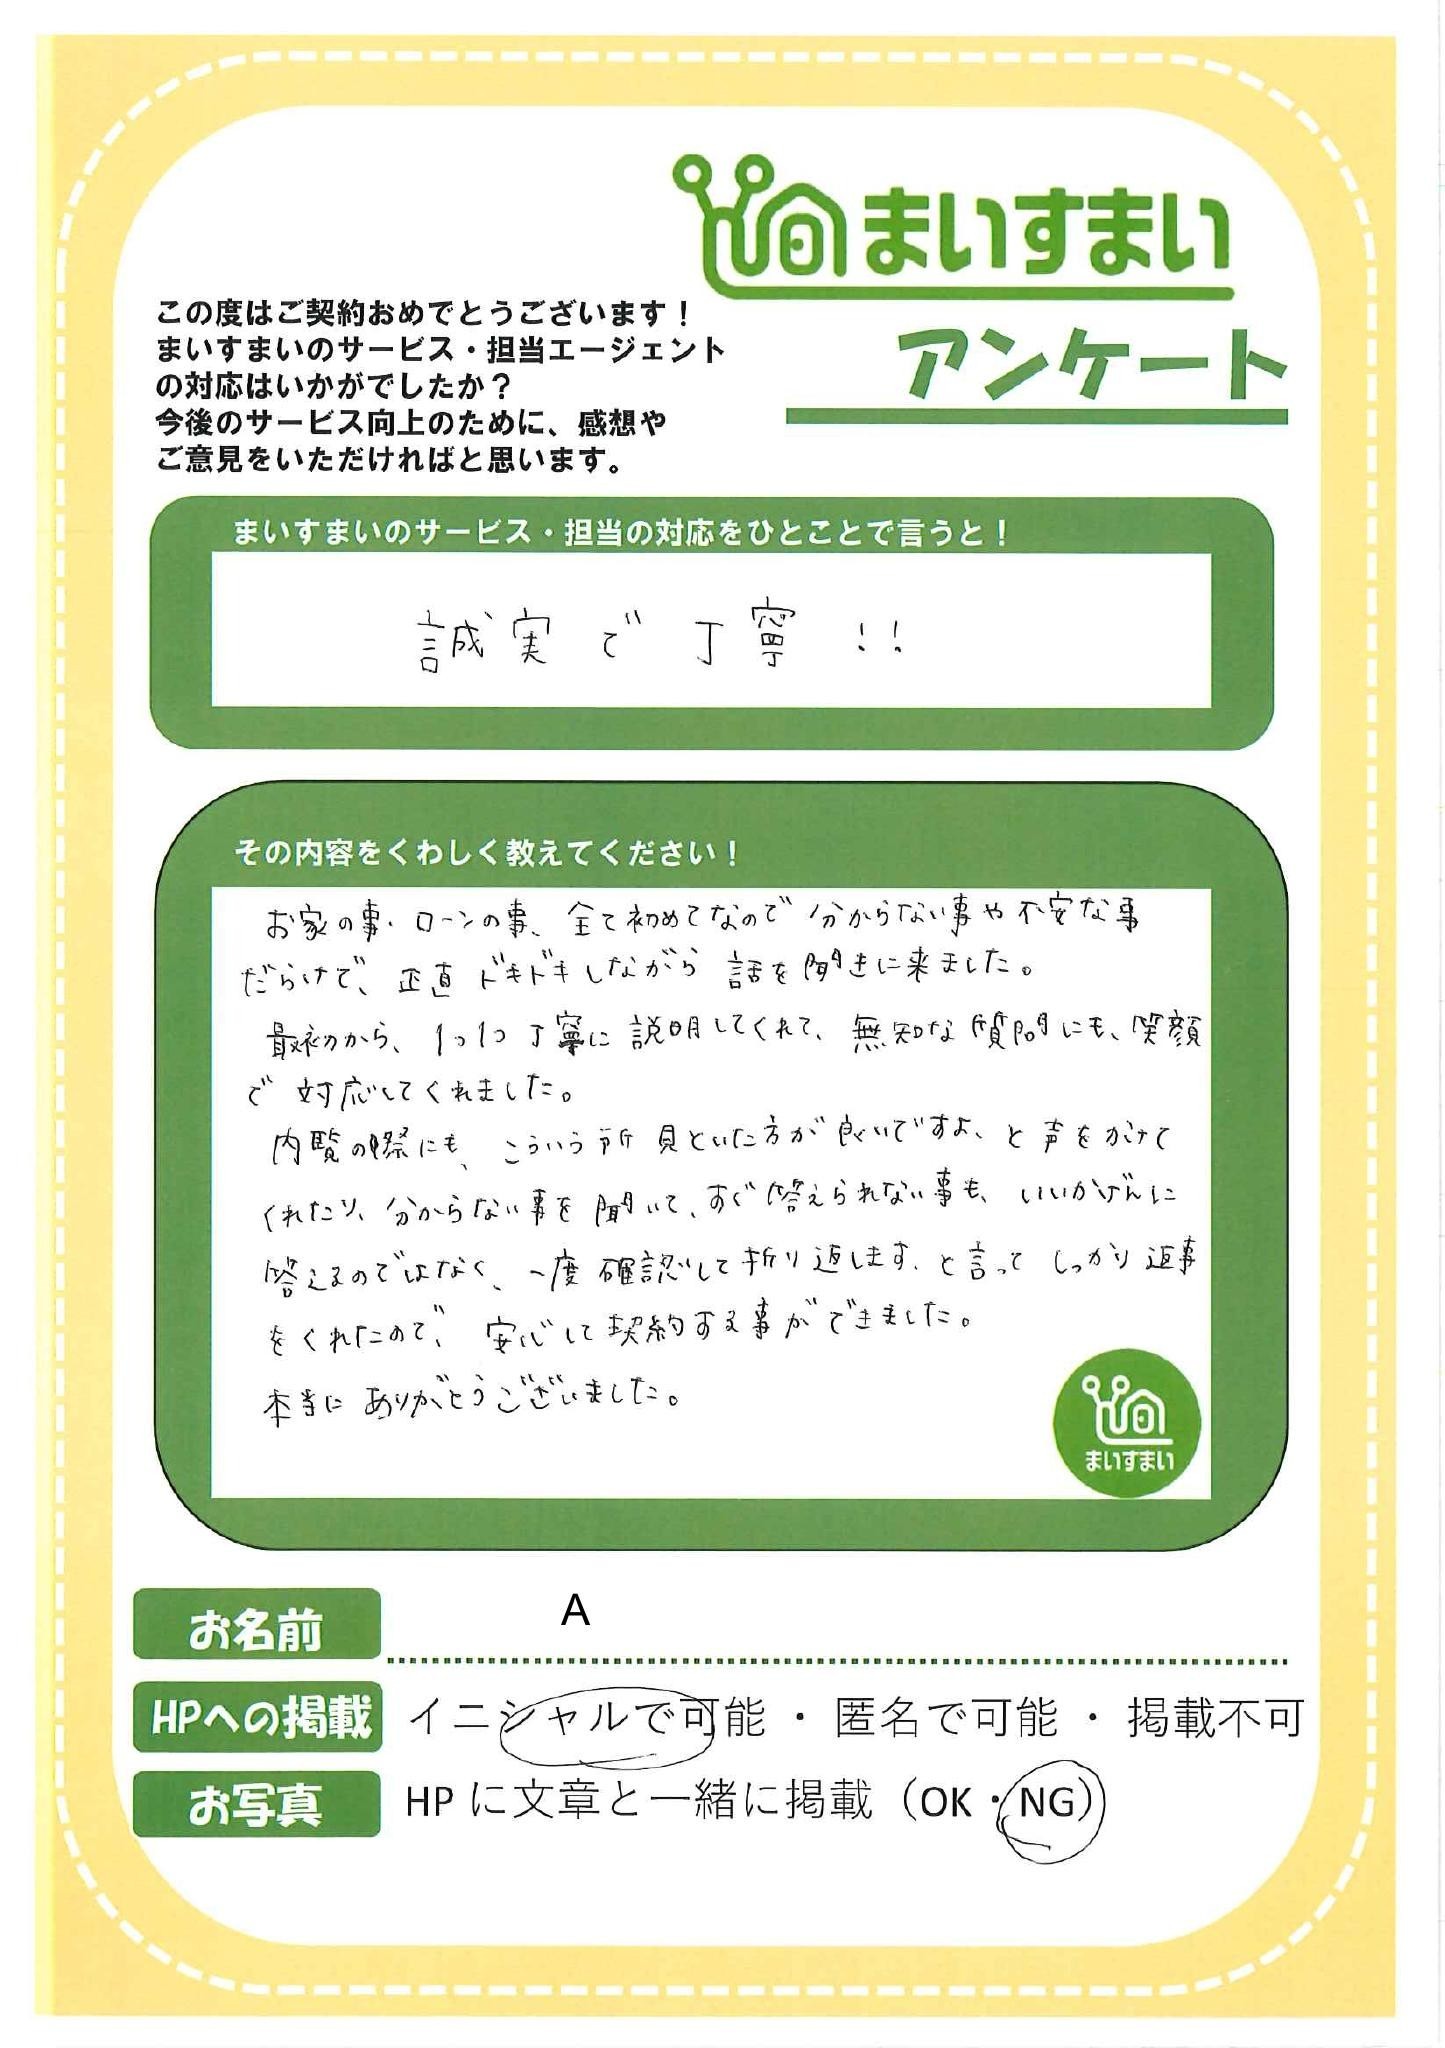 まいすまい
アンケート
この度はご契約おめでとうございます！
まいすまいのサービス・担当エージェント
の対応はいかがでしたか？
今後のサービス向上のために、感想や
ご意見をいただければと思います。
まいすまいのサービス・担当の対応をひとことで言うと！
誠実で丁寧!!
その内容をくわしく教えてください！
お家の事・ローンの事、全て初めてなので分からない事や不安な事
だらけで、正直ドキドキしながら話を聞きに来ました。
最初から、1つ1つ丁寧に説明してくれて、無知な質問にも、笑顔
で対応してくれました。
内覧の際にも、こういう所見といた方が良いですよ、と声をかけて
くれたり、分からない事を聞いて、すぐ答えられない事も、いいかげんに
答えるのではなく、一度確認して折り返します、と言ってしっかり返事
をくれたので、安心して契約する事ができました。
本当にありがとうございました。
まいすまい
お名前 A
HPへの掲載 イニシャルで可能・匿名で可能・掲載不可
お写真 HPに文章と一緒に掲載（OK・NG）